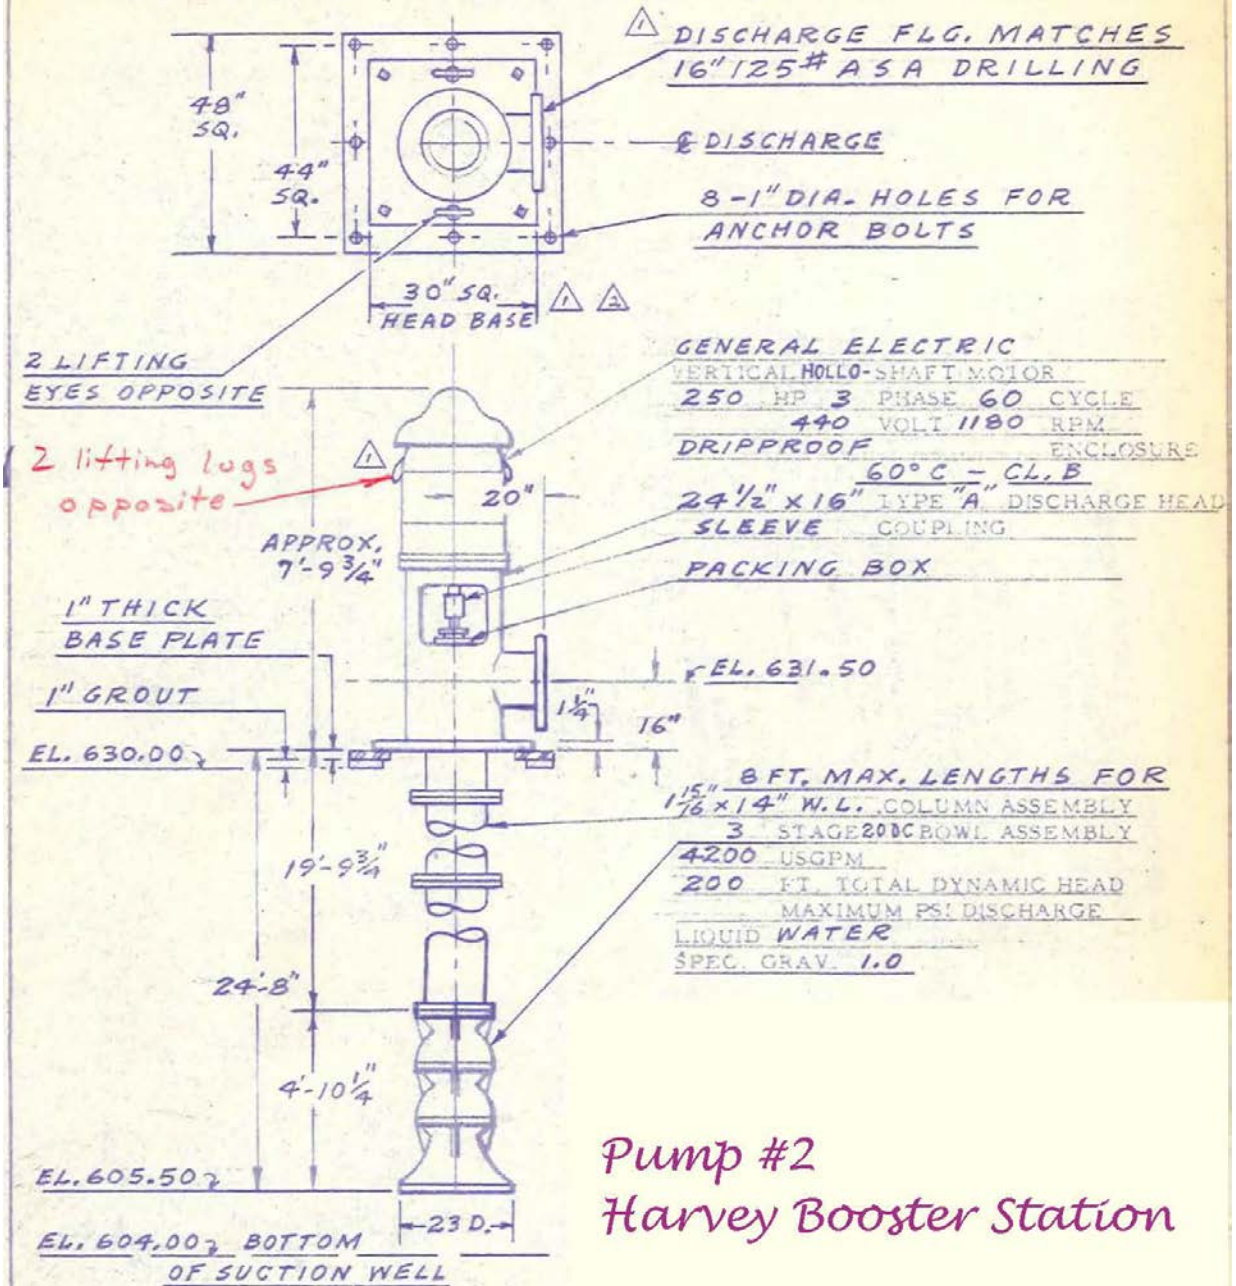 1
DISCHARGE FLG. MATCHES
16" 125# ASA DRILLING
48"
SQ.
44"
SQ.
℄ DISCHARGE
8-1" DIA. HOLES FOR
ANCHOR BOLTS
30" SQ.
HEAD BASE
1 2
2 LIFTING
EYES OPPOSITE
GENERAL ELECTRIC
VERTICAL HOLLO-SHAFT MOTOR
250 HP 3 PHASE 60 CYCLE
440 VOLT 1180 RPM
DRIPPROOF ENCLOSURE
60° C - CL. B
24 1/2" x 16" TYPE "A" DISCHARGE HEAD
SLEEVE COUPLING
PACKING BOX
2 lifting lugs
opposite
1
20"
APPROX.
7'-9 3/4"
1" THICK
BASE PLATE
1" GROUT
EL. 631.50
1 1/4"
16"
EL. 630.00
8 FT. MAX. LENGTHS FOR
1 15/16" x 14" W.L. COLUMN ASSEMBLY
3 STAGE 20DC BOWL ASSEMBLY
4200 USGPM
200 FT. TOTAL DYNAMIC HEAD
MAXIMUM PSI DISCHARGE
LIQUID WATER
SPEC. GRAV. 1.0
19'-9 3/4"
24'-8"
4'-10 1/4"
EL. 605.50
23 D.
EL. 604.00 BOTTOM
OF SUCTION WELL
Pump #2
Harvey Booster Station